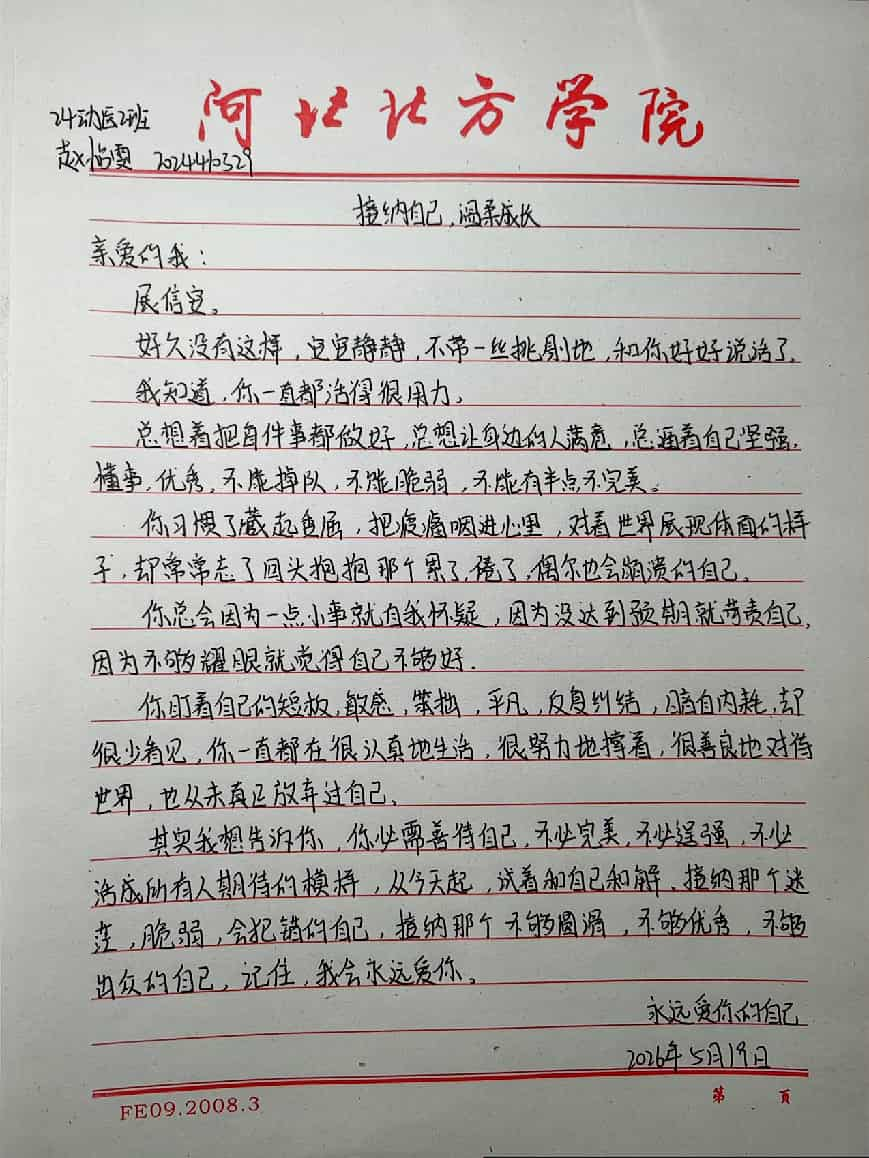 河北北方学院
24动医2班
赵怡雯 2024410329
接纳自己，温柔成长
亲爱的我：
展信安。
好久没有这样，安安静静，不带一丝挑剔地，和你好好说话了。
我知道，你一直都活得很用力。
总想着把每件事都做好，总想让身边的人满意，总逼着自己坚强、
懂事，优秀，不能掉队，不能脆弱，不能有半点不完美。
你习惯了藏起委屈，把疲惫咽进心里，对着世界展现体面的样
子，却常常忘了回头抱抱那个累了，倦了，偶尔也会崩溃的自己。
你总会因为一点小事就自我怀疑，因为没达到预期就苛责自己，
因为不够耀眼就觉得自己不够好.
你盯着自己的短板，敏感，笨拙，平凡，反复纠结，暗自内耗，却
很少看见，你一直都在很认真地生活，很努力地撑着，很善良地对待
世界，也从未真正放弃过自己。
其实我想告诉你，你必需善待自己，不必完美，不必逞强，不必
活成所有人期待的模样，从今天起，试着和自己和解、接纳那个迷
茫，脆弱，会犯错的自己，接纳那个不够圆滑，不够优秀，不够
出众的自己，记住，我会永远爱你。
永远爱你的自己
2026年5月19日
FE09.2008.3
第 页